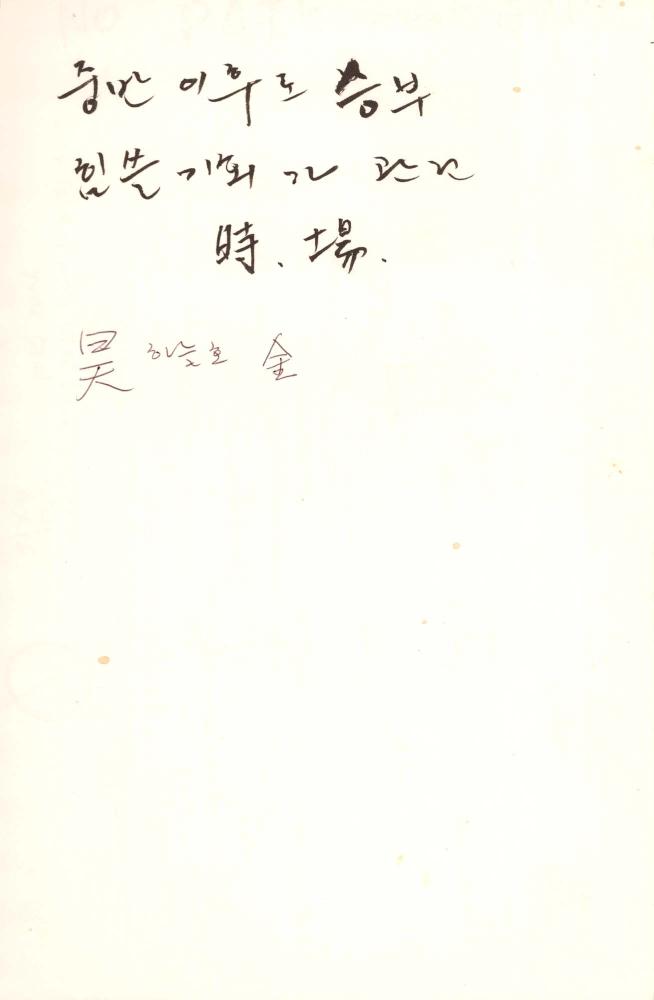 중반 이후로 승부
힘쓸 기회가 관건
時、場.
昊 하늘호 金